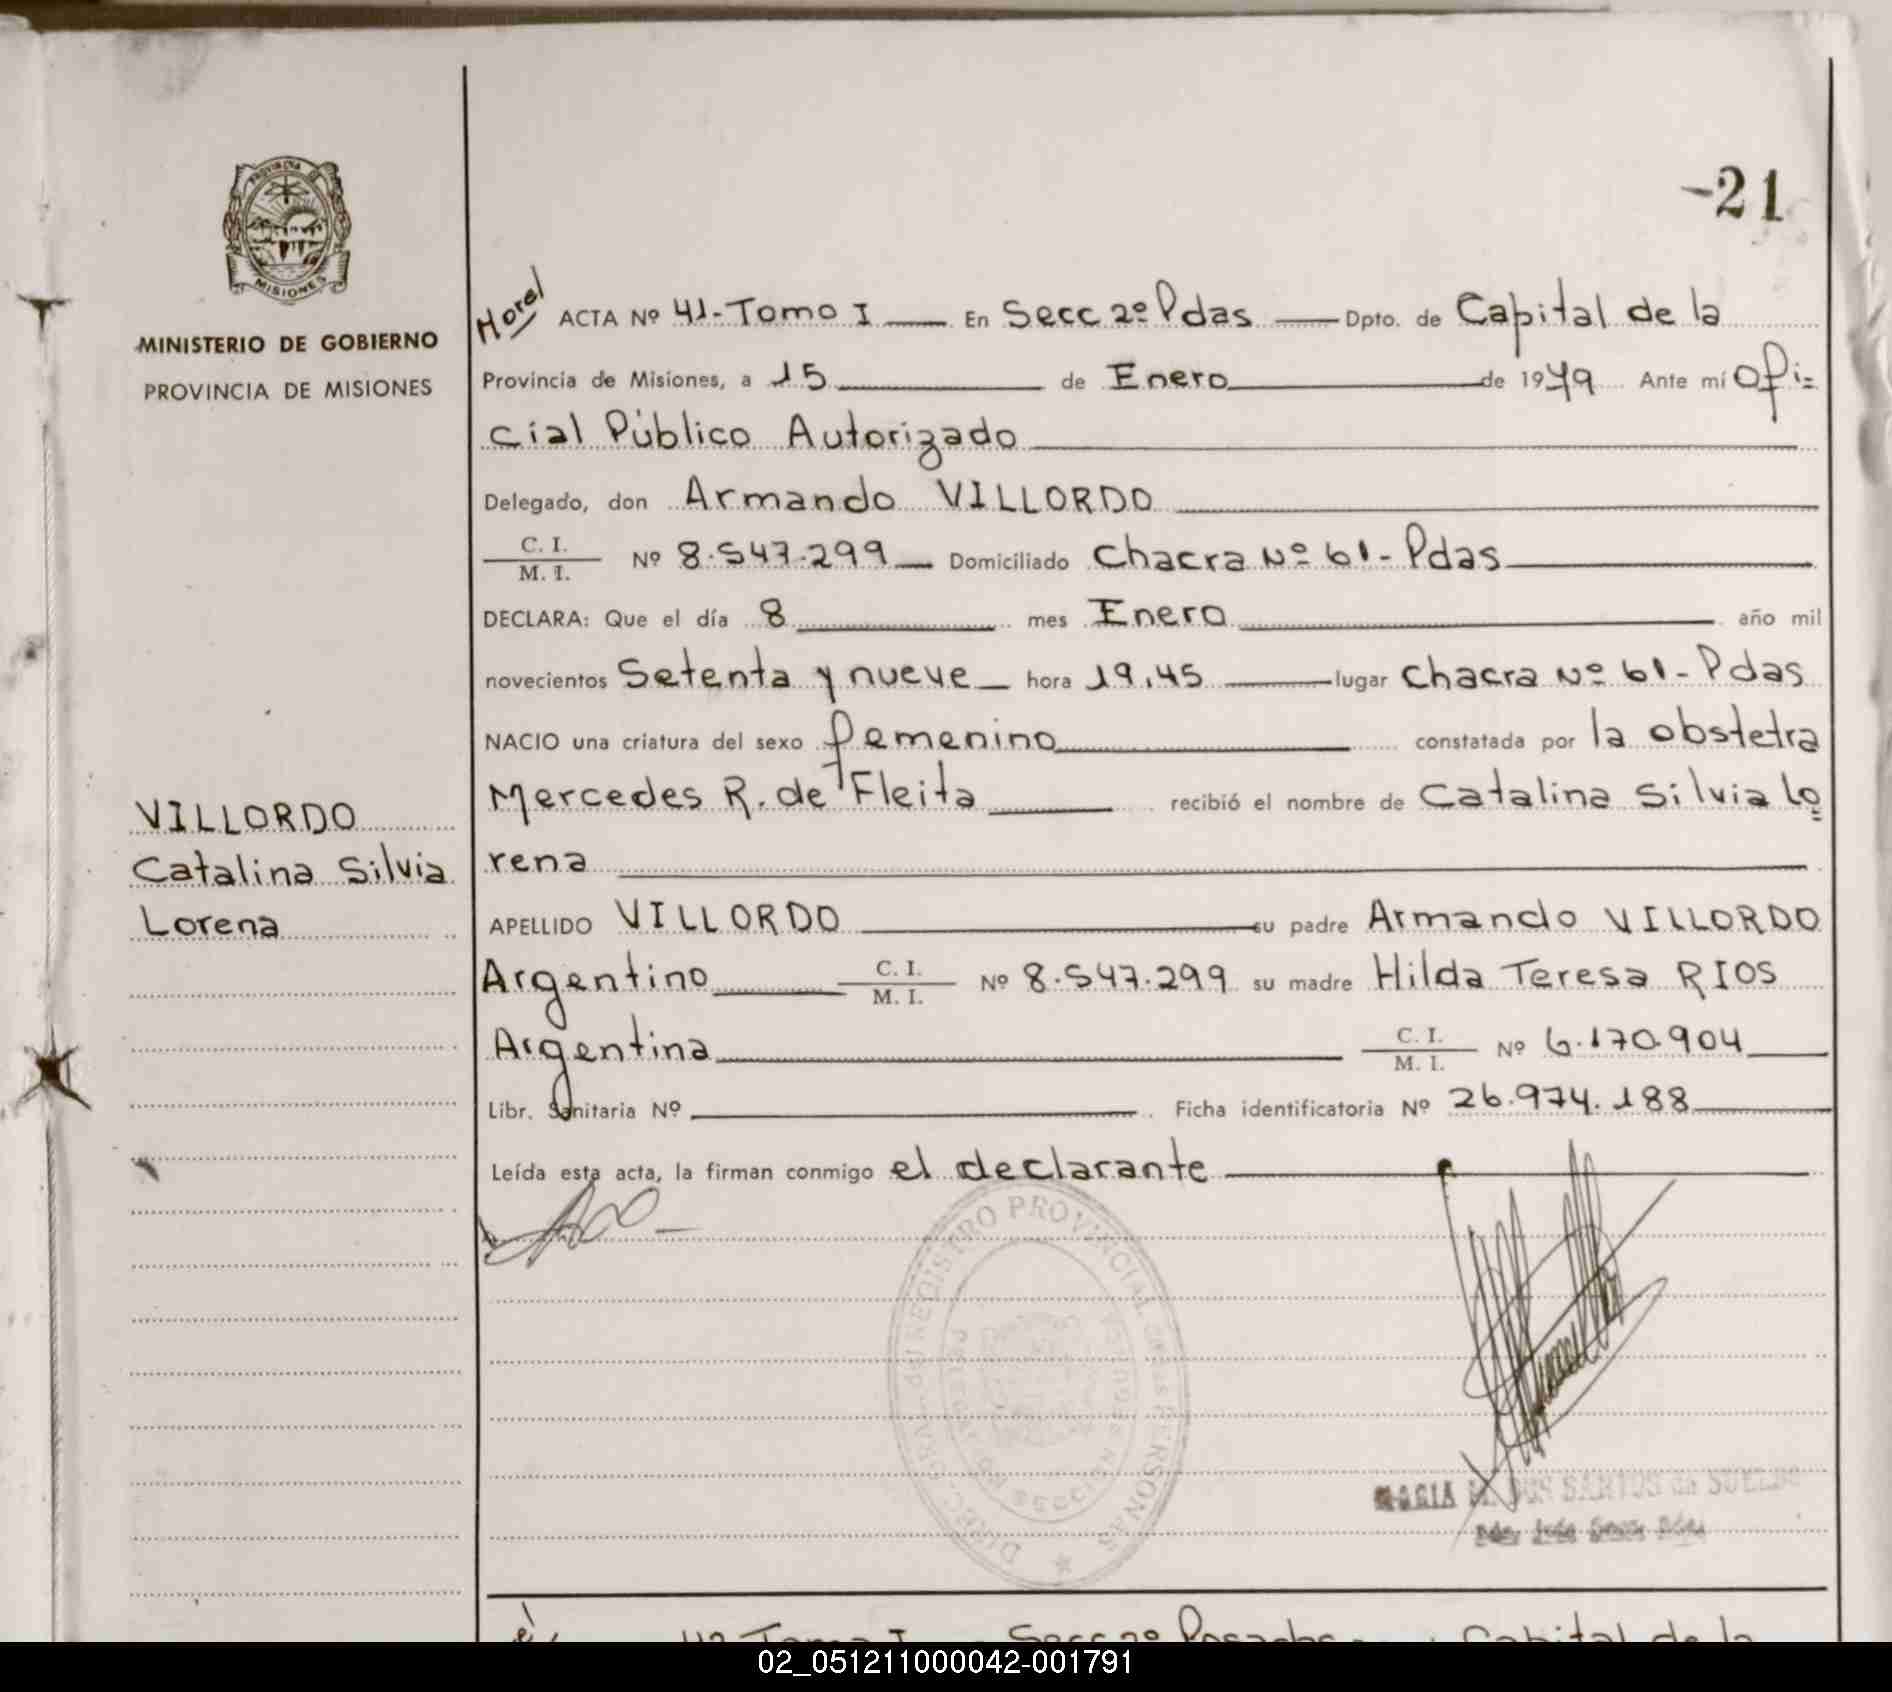 PROVINCIA DE
MISIONES
MINISTERIO DE GOBIERNO
PROVINCIA DE MISIONES
-21
ACTA Nº 41-Tomo I En Secc 2º Pdas Dpto. de Capital de la
Provincia de Misiones, a 15 de Enero de 1979 Ante mí Ofi=
cial Público Autorizado
Delegado, don Armando VILLORDO
C. I.
M. I.
Nº 8.547.299 Domiciliado Chacra Nº 61-Pdas
DECLARA: Que el día 8 mes Enero año mil
novecientos Setenta y nueve hora 19,45 lugar Chacra Nº 61-Pdas
NACIO una criatura del sexo femenino constatada por la obstetra
Mercedes R. de Fleita recibió el nombre de Catalina Silvia Lo=
rena
VILLORDO
Catalina Silvia
Lorena
APELLIDO VILLORDO su padre Armando VILLORDO
Argentino C. I. M. I. Nº 8.547.299 su madre Hilda Teresa RIOS
Argentina C. I. M. I. Nº 6.170.904
Libr. Sanitaria Nº Ficha identificatoria Nº 26.974.188
Leída esta acta, la firman conmigo el declarante
DIREC. GRAL. del REGISTRO PROVINCIAL de las PERSONAS
SECCION
MARIA DOS SANTOS de
42 Tomo I Secc 2º Posadas Capital de la
02_051211000042-001791